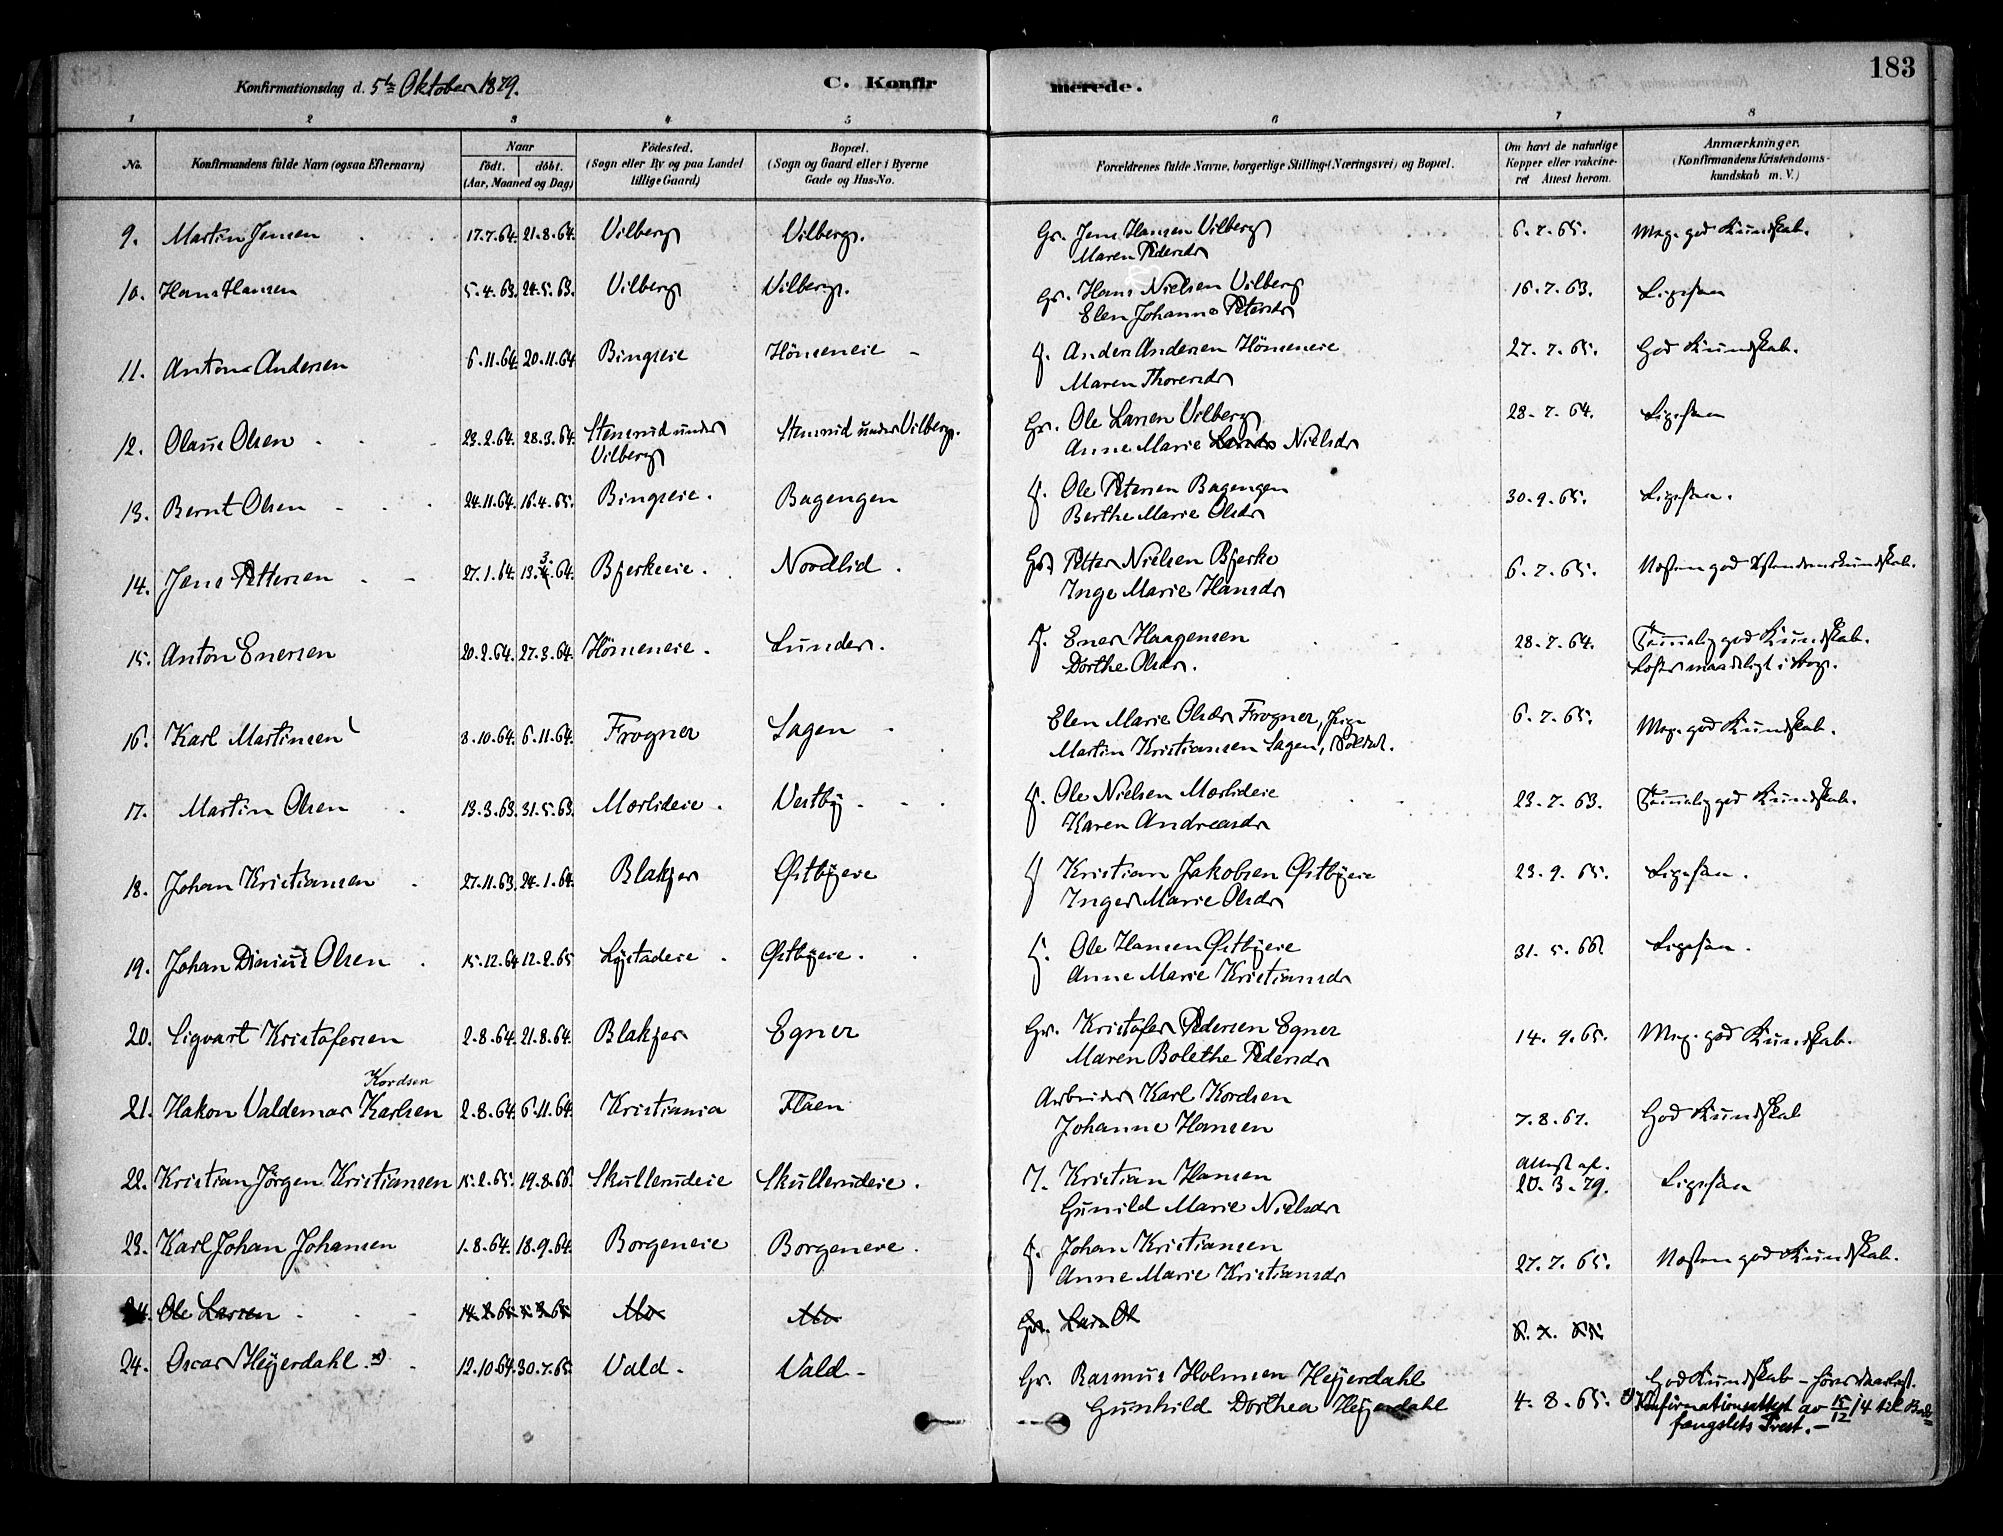 183
Konfirmationsdag d. 5te Oktober 1879.
C. Konfirmerede.
1 2 3 4 5 6 7 8
No. Konfirmandens fulde Navn (ogsaa Efternavn) Naar født. døbt. (Aar, Maaned og Dag) Fødested. (Sogn eller By og paa Landet tillige Gaard) Bopæl. (Sogn og Gaard eller i Byerne Gade og Hus-No. Forældrenes fulde Navne, borgerlige Stilling (Næringsvei) og Bopæl. Om havt de naturlige Kopper eller vakcineret Attest herom. Anmærkninger. (Konfirmandens Kristendomskundskab m. V.)
9. Martin Jensen 17.7.64. 21.8.64. Vilberg Vilberg. Gr. Jens Hansen Vilberg 6.7.65. Meg. god Kundskab.
Maren Pedersdr
10. Hans Hansen 5.4.63. 24.5.63. Vilberg Vilberg. Gr. Hans Nielsen Vilberg 16.7.63. Ligesaa
Elen Johanne Petersdr
11. Anton Andersen 6.11.64. 20.11.64 Bingseie Hömeneie - J. Anders Andersen Hömeneie 27.7.65. God Kundskab.
Maren Thorersdr
12. Olaus Olsen 23.2.64. 28.3.64. Stensrud under Vilberg Stensrud under Vilberg. Gr. Ole Larsen Vilberg 28.7.64. Ligesaa
Anne Marie Nielsdr
13. Bernt Olsen 24.11.64. 16.4.65. Bingseie. Bagengen J. Ole Petersen Bagengen 30.9.65. Ligesaa.
Berthe Marie Olsdr
14. Jens Pettersen 27.1.64. 13.3.64. Bjerkeeie. Nordlid. Gr. Petter Nielsen Bjerke 6.7.65. Næsten god Kristendomskundskab.
Inge Marie Hansdr
15. Anton Enersen 20.2.64. 27.3.64. Hömeneie. Lunder. J. Ener Haagensen 28.7.64. Temmelig god Kundskab.
Dorthe Olsdr. Læser maadeligt i Bog.
16. Karl Martinsen 8.10.64. 6.11.64. Frogner Sagen Elen Marie Olsdr Frogner, Pige 6.7.65. Meg. god Kundskab.
Martin Kristiansen Sagen, Soldat.
17. Martin Olsen 13.3.63. 31.5.63. Mærlideie. Vestby. J. Ole Nielsen Mærlideie 23.7.63. Temmelig god Kundskab.
Karen Andreasdr
18. Johan Kristiansen 27.11.63. 24.1.64. Blakjer Østbyeie J Kristian Jakobsen Østbyeie 23.9.65. Ligesaa.
Inger Marie Olsdr
19. Johan Dinius Olsen 15.12.64 12.2.65 Lystadeie. Østbyeie. J. Ole Hansen Østbyeie 31.5.66. Ligesaa.
Anne Marie Kristiansdr
20. Sigvart Kristofersen 2.8.64. 21.8.64. Blakjer Egner Gr. Kristofer Pedersen Egner 14.9.65. Meg. god Kundskab.
Maren Bolethe Pedersdr
Kordsen
21. Hakon Valdemar Karlsen 2.8.64. 6.11.64. Kristiania Flaen Arbeider Karl Kordsen 7.8.67. God Kundskab
Johanne Hansen
22. Kristian Jörgen Kristiansen 15.2.65. 19.8.66. Skulleudeie Skulleudeie. J. Kristian Hansen Attest af. 20.3.79. Ligesaa
Gunild Marie Nielsdr
23. Karl Johan Johansen 1.8.64. 18.9.64. Borgeneie Borgeneie. J. Johan Kristiansen 27.7.65. Næsten god Kundskab.
Anne Marie Kristiansdr
24. Ole Larsen Mo Mo Gr. Lars Ol
24. Oscar Heyerdahl. x) 12.10.64. 30.7.65. Vald. Vald. Gr. Rasmus Holmsen Heyerdahl 4.8.65. God Kundskab - hører daarligt.
Gunhild Dorthea Heyerdahl x) Konfirmationsattest av 15/12 14 til Bods=
fængslets Prest. -